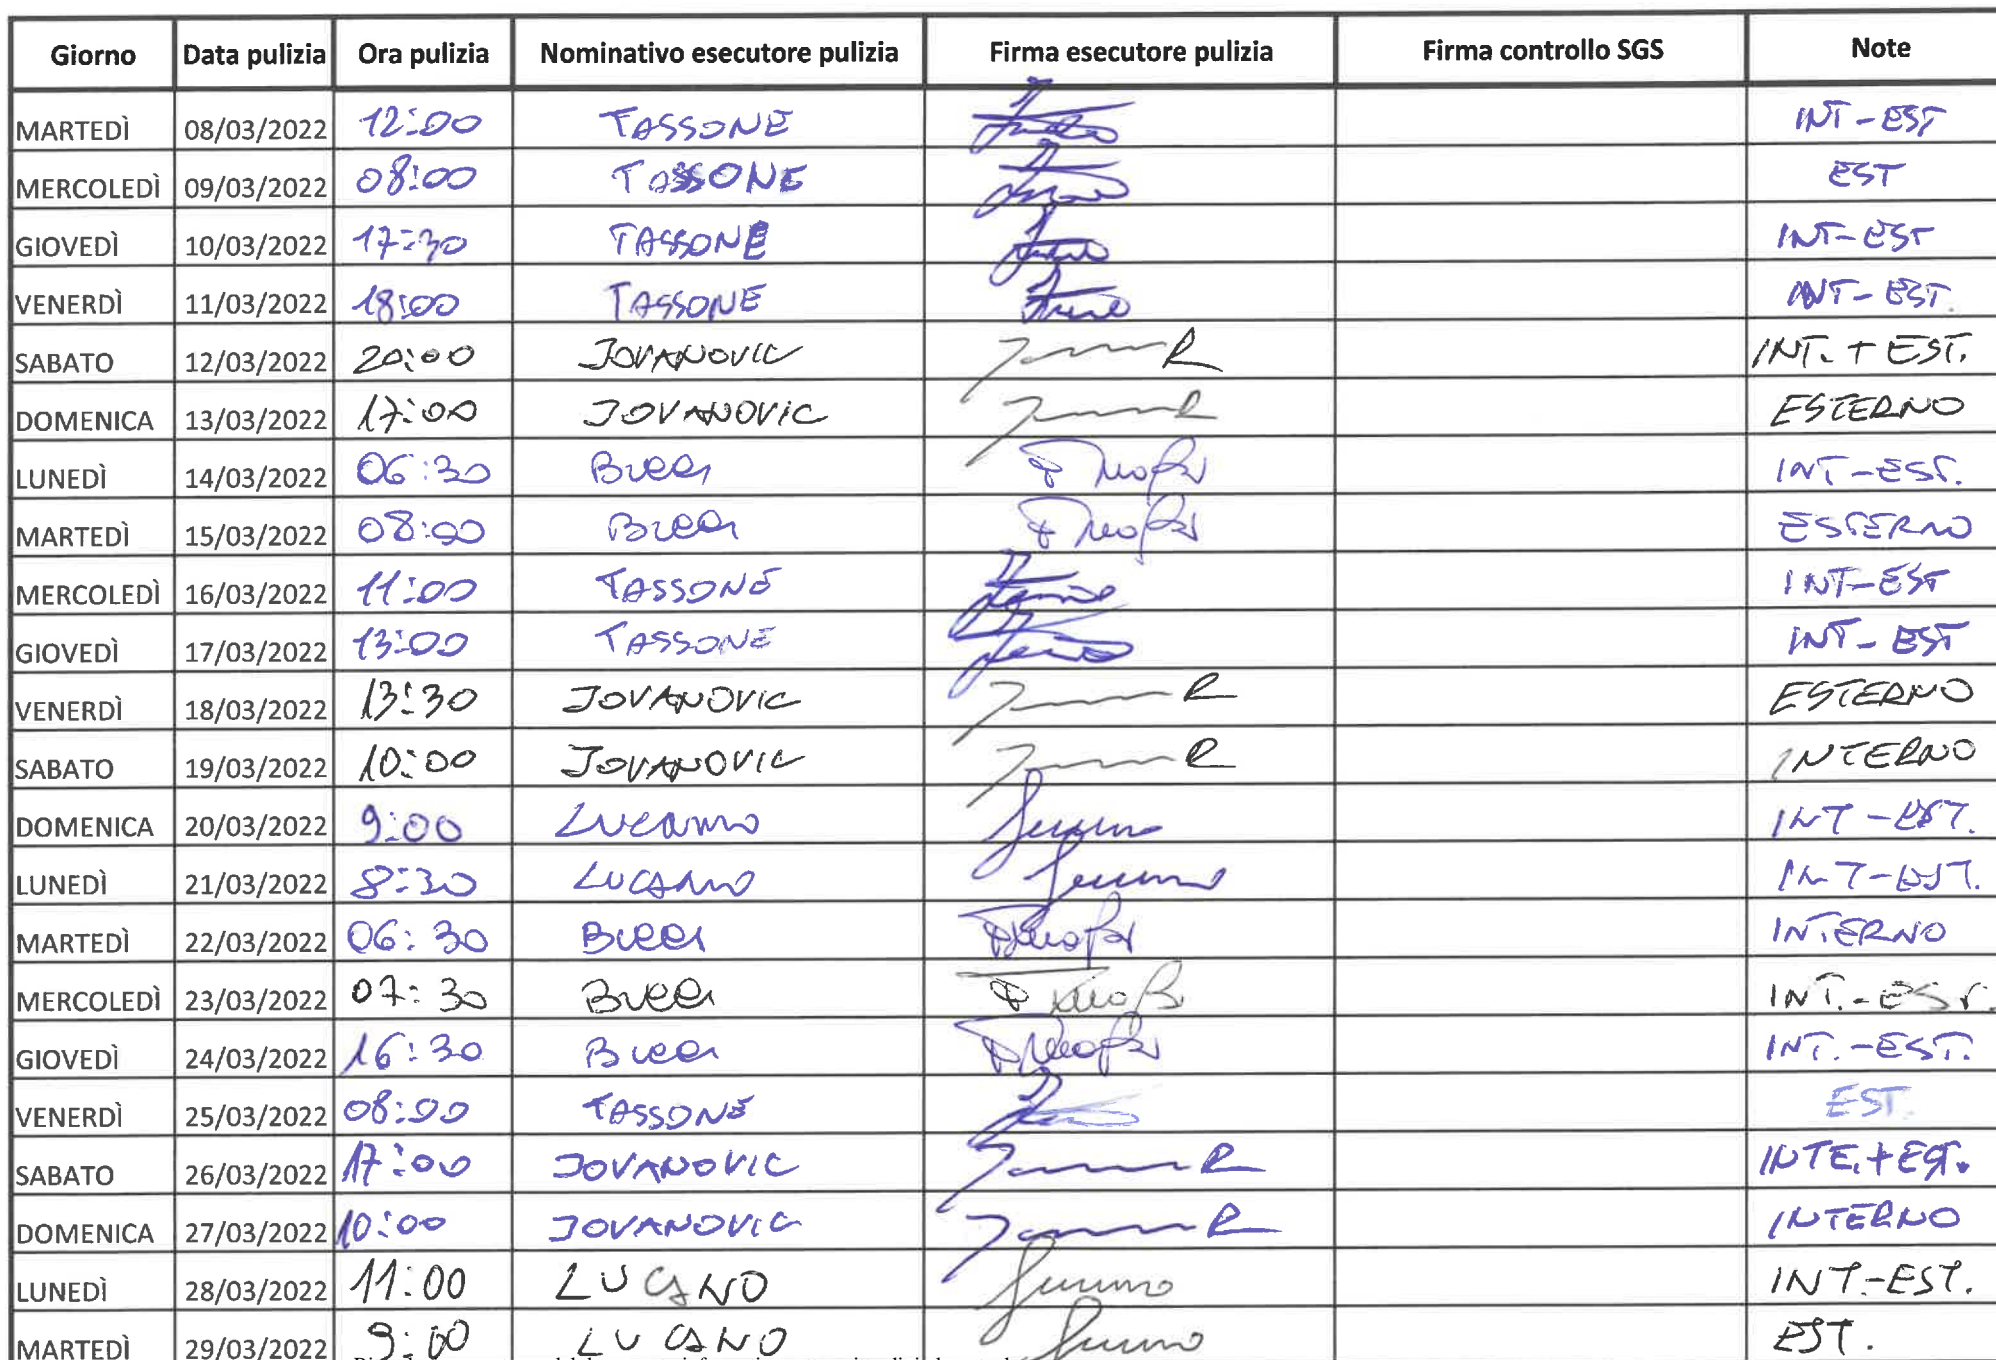 Giorno Data pulizia Ora pulizia Nominativo esecutore pulizia Firma esecutore pulizia Firma controllo SGS Note
MARTEDÌ 08/03/2022 12:00 TASSONE INT-EST
MERCOLEDÌ 09/03/2022 08:00 TASSONE EST
GIOVEDÌ 10/03/2022 17:30 TASSONE INT-EST
VENERDÌ 11/03/2022 18:00 TASSONE INT-EST.
SABATO 12/03/2022 20:00 JOVANOVIC INT. + EST.
DOMENICA 13/03/2022 17:00 JOVANOVIC ESTERNO
LUNEDÌ 14/03/2022 06:30 Bucci INT-EST.
MARTEDÌ 15/03/2022 08:00 Bucci ESTERNO
MERCOLEDÌ 16/03/2022 11:00 TASSONE INT-EST
GIOVEDÌ 17/03/2022 13:00 TASSONE INT-EST
VENERDÌ 18/03/2022 13:30 JOVANOVIC ESTERNO
SABATO 19/03/2022 10:00 JOVANOVIC INTERNO
DOMENICA 20/03/2022 9:00 LUCANO INT-EST.
LUNEDÌ 21/03/2022 8:30 LUCANO INT-EST.
MARTEDÌ 22/03/2022 06:30 Bucci INTERNO
MERCOLEDÌ 23/03/2022 07:30 Bucci INT.-EST.
GIOVEDÌ 24/03/2022 16:30 Bucci INT.-EST.
VENERDÌ 25/03/2022 08:00 TASSONE EST.
SABATO 26/03/2022 17:00 JOVANOVIC INTE.+EST.
DOMENICA 27/03/2022 10:00 JOVANOVIC INTERNO
LUNEDÌ 28/03/2022 11:00 LUCANO INT-EST.
MARTEDÌ 29/03/2022 9:00 LUCANO EST.